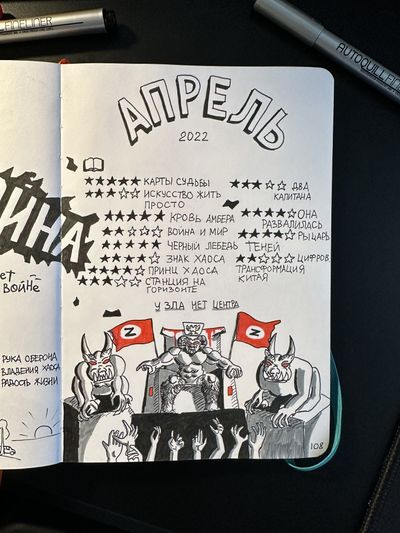 FINELINER
AUTOQUILL FINE
АПРЕЛЬ
2022
★★★★★ КАРТЫ СУДЬБЫ
★★★☆☆ ИСКУССТВО ЖИТЬ
ПРОСТО
★★★★★ КРОВЬ АМБЕРА
★★☆☆☆ ВОЙНА И МИР
★★★★★ ЧЁРНЫЙ ЛЕБЕДЬ
★★★★☆ ЗНАК ХАОСА
★★★★★ ПРИНЦ ХАОСА
★★★☆☆ СТАНЦИЯ НА
ГОРИЗОНТЕ
★★★☆☆ ДВА
КАПИТАНА
★★★★☆ ОНА
РАЗВАЛИЛАСЬ
★★★★☆ РЫЦАРЬ
ТЕНЕЙ
★★☆☆☆ ЦИФРОВ.
ТРАНСФОРМАЦИЯ
КИТАЯ
У ЗЛА НЕТ ЦЕНТРА
Z
Z
108
ИНА
ЕТ
ВОЙНЕ
РУКА ОБЕРОНА
ВЛАДЕНИЯ ХАОСА
РАДОСТЬ ЖИЗНИ